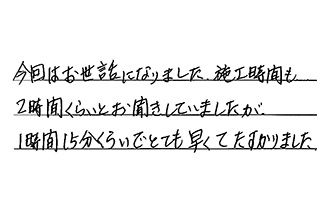 今回はお世話になりました。施工時間も、
2時間くらいとお聞きしていましたが、
1時間15分くらいでとても早くてたすかりました